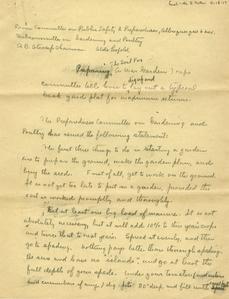 Committee on Public Safety & Preparedness, Albuquerque
Subcommittee on Gardening and Poultry
Chairman Aldo Leopold
The Soil For
Preparing a War Garden
Committee tells how to lay out a typical
back yard plat for maximum returns.
The Preparedness Committee on Gardening and
Poultry has issued the following statement:
The first three things to do in starting a garden
are to prepare the ground, make the garden plan, and
buy the seeds. First of all, get to work on the ground.
It is not yet too late to put in a garden, provided the
soil is worked promptly and thoroughly.
Put at least one big load of manure. It is not
absolutely necessary but it will add 10% to this years crops
and times that to next years. Spread it evenly, and then
go to spading. Nothing pays better than thorough spading.
See and leave no "islands", and go at least the
full depth of your spade. Under your tomatoes
and cucumbers if any, dig pits 20" deep and fill with